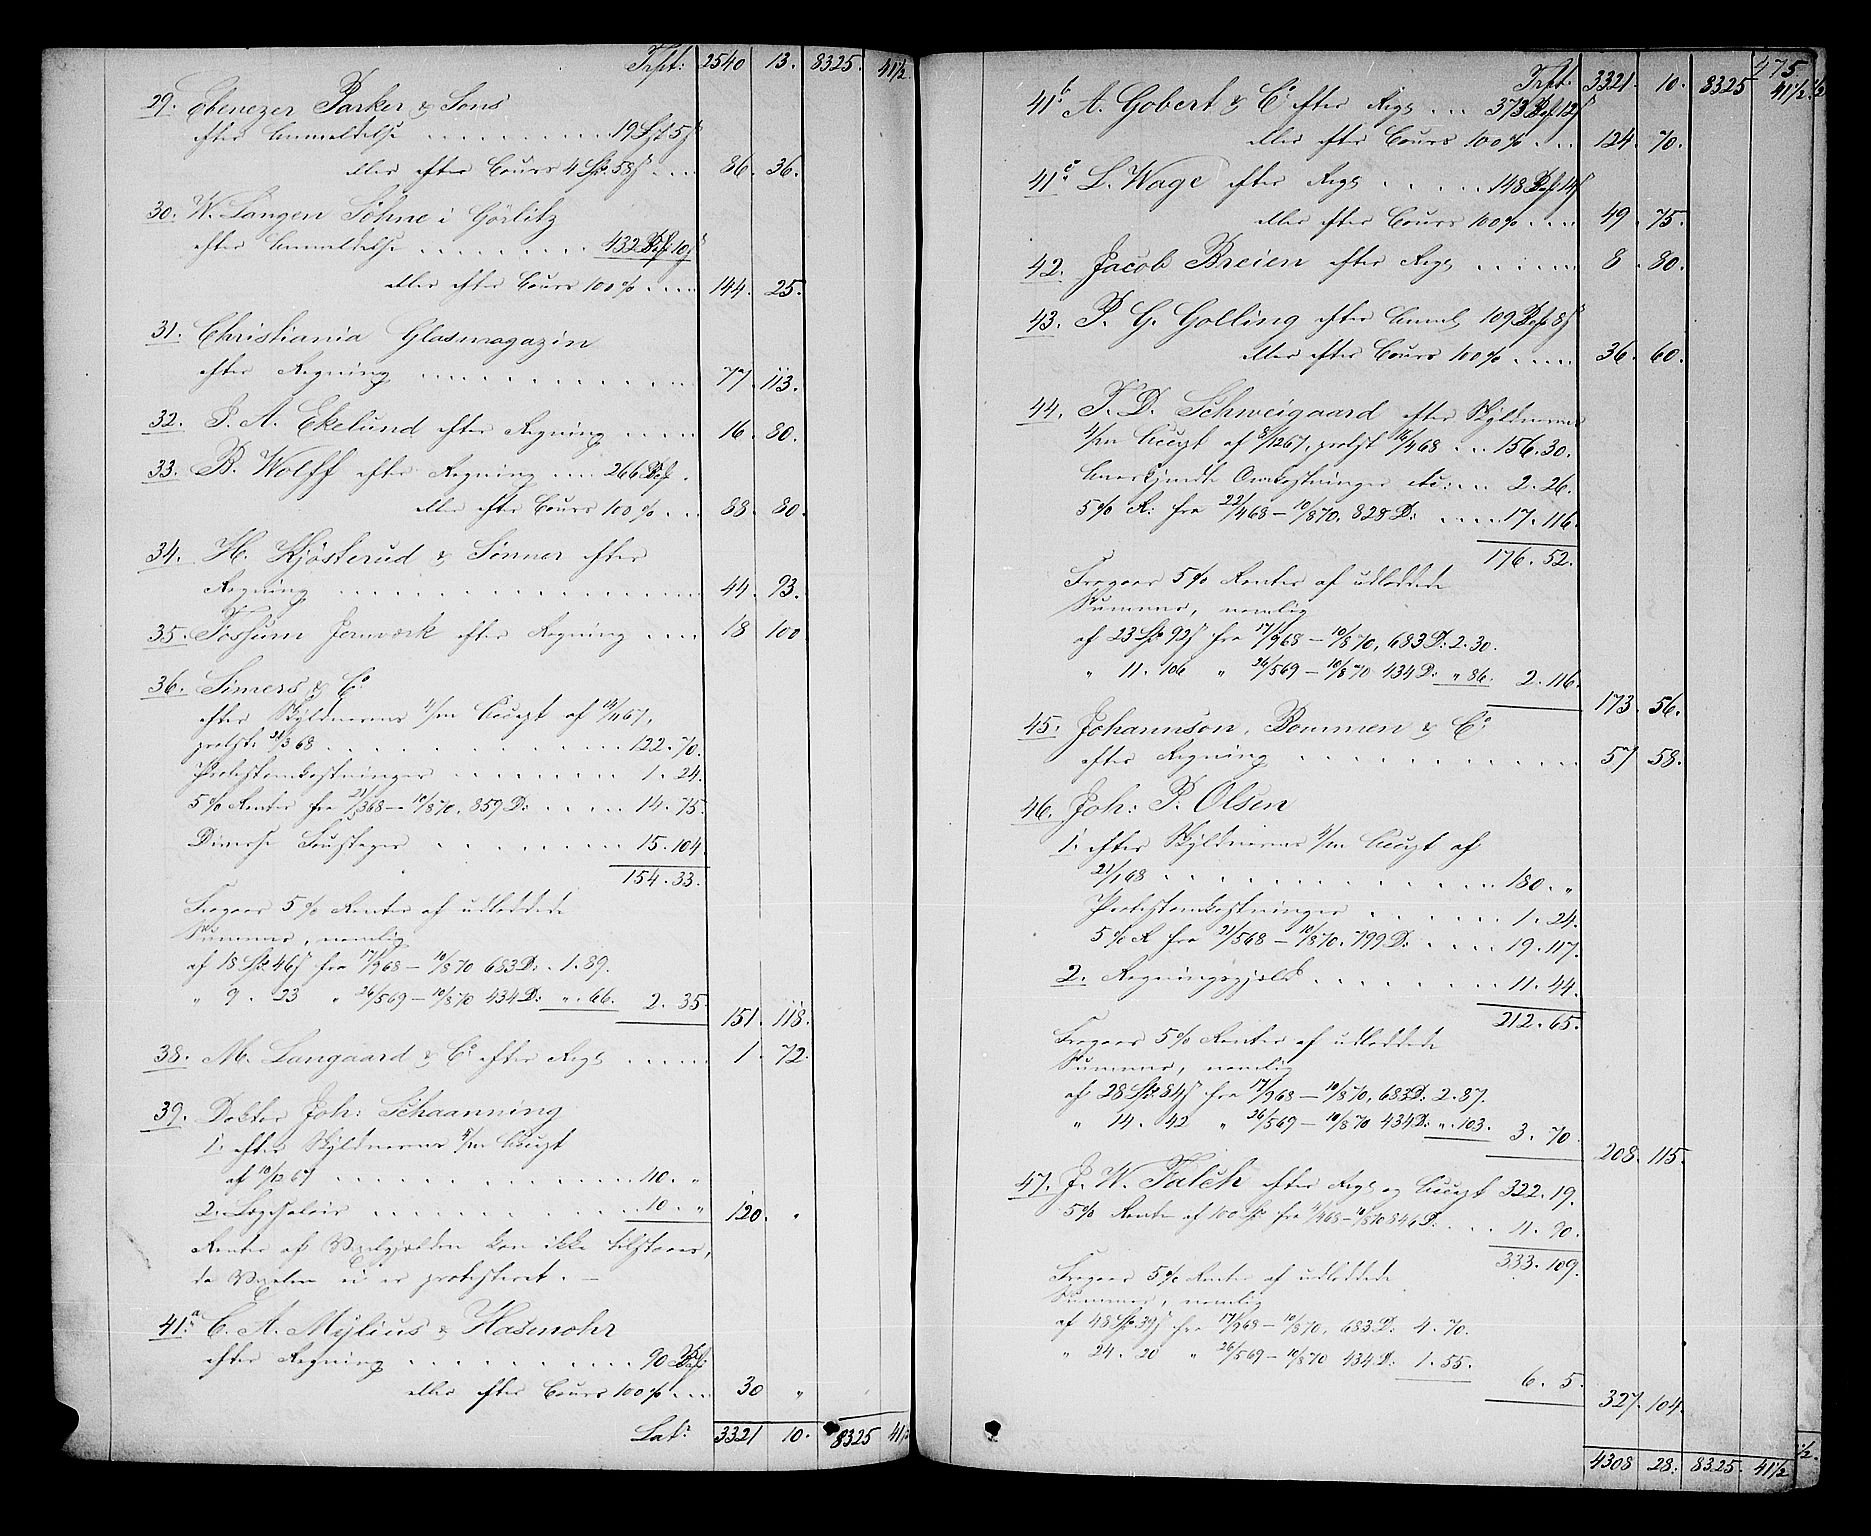 Trpt: 2540 13. 8325. 41½
29. Ebenezer Parker & Sons
efter Anmeldelse . . . 19 L 5
eller efter Cours 4 Sp. 58 . . . 86. 36.
30. W. Langen Söhne i Görlitz
efter Anmeldelse . . . 432 10
eller efter Cours 100% . . . 144. 25.
31. Christiania Glasmagazin
efter Regning . . . 77. 113.
32. P. A. Ekelund efter Regning . . . 16. 80.
33. B. Wolff efter Regning . . . 266
eller efter Cours 100% . . . 88. 80.
34. H. Kjösterud & Sønner efter
Regning . . . 44. 93.
35. Fossum Jernværk efter Regning . . . 18 100
36. Simers & Co
efter Skyldnerens 4/m Accept af 14/1167,
protst. 21/368 . . . 122. 70.
Protestomkostninger . . . 1. 24.
5% Renter fra 21/368 – 10/870, 859 D: . . . 14. 75.
Diverse . . . 15. 104.
154. 33.
Fragaar 5% Renter af udloddede
Summer, nemlig
af 18 Sp. 46 fra 17/968 – 10/870 683 D: . 1. 89.
" 9. 23 " 26/569 – 10/870 434 D: ". 66. 2. 35.
151. 118.
38. M. Langaard & Co efter Regs . . . 1. 72.
39. Doktor Joh: Schaanning
1. efter Skyldnerens /m Accept
af 10/1267 . . . 110. "
2. Lægesalair . . . 10. " 120. "
Renter af Vexelgjælden kan ikke tilstaaes,
da Vexelen ei er protesteret. –
41a. C. A. Mylius & Hasenohr
efter Regning . . . 90
eller efter Cours 100% . . . 30 "
Lats 3321 10. 8325 41½
475.
Trpt: 3321. 10. 8325 41½
41b. A. Gobert & Co efter Regs . . . 373 12
eller efter Cours 100% . . . 124. 70.
41c. L. Wage efter Regs . . . 148 14
eller efter Cours 100% . . . 49. 75.
42. Jacob Breien efter Regs . . . 8. 80.
43. P. G. Golling efter Anmel 109 8
eller efter Cours 100% . . . 36. 60.
44. P. D. Schweigaard efter Skyldnerens
4/m Accept af 8/1267, protst 16/468 . . . 156. 30.
Omkostninger etc: . . . 2. 26.
5% R: fra 22/468 – 10/870, 828 D: . . . 17. 116.
176. 52.
Fragaar 5% Renter af udloddede
Summer, nemlig
af 23 Sp. 92 fra 17/968 – 10/870, 683 D: 2. 30.
" 11. 106 " 26/569 – 10/870 434 D: " 86. 2. 116.
173. 56.
45. Johannson, Bommen & Co:
efter Regning . . . 57 58.
46. Joh: P. Olsen
1. efter Skyldnerens 4/m Accept af
21/168 . . . 180. "
Protestomkostninger . . . 1. 24.
5% R fra 21/568 – 10/870, 799 D: . . . 19. 117.
2. Regningsgjæld . . . 11. 44.
212. 65.
Fragaar 5% Renter af udloddede
Summer, nemlig
af 28 Sp. 84 fra 17/968 – 10/870, 683 D. 2. 87.
" 14. 42 " 26/569 – 10/870 434 D: ". 103. 3. 70.
208. 115.
47. J. W. Falch efter Regs og Accept 322. 19.
5% Renter af 100 Sp. fra /468 – 10/870 846 D: . . . 11. 90.
333. 109.
Fragaar 5% Renter af udloddede
Summer, nemlig
af 48 Sp. 39 fra 17/968 – 10/870, 683 D: 4. 70.
" 24. 20 " 26/569 – 10/870 434 D: 1. 55.
6. 5.
327. 104.
4308 28. 8325. 41½